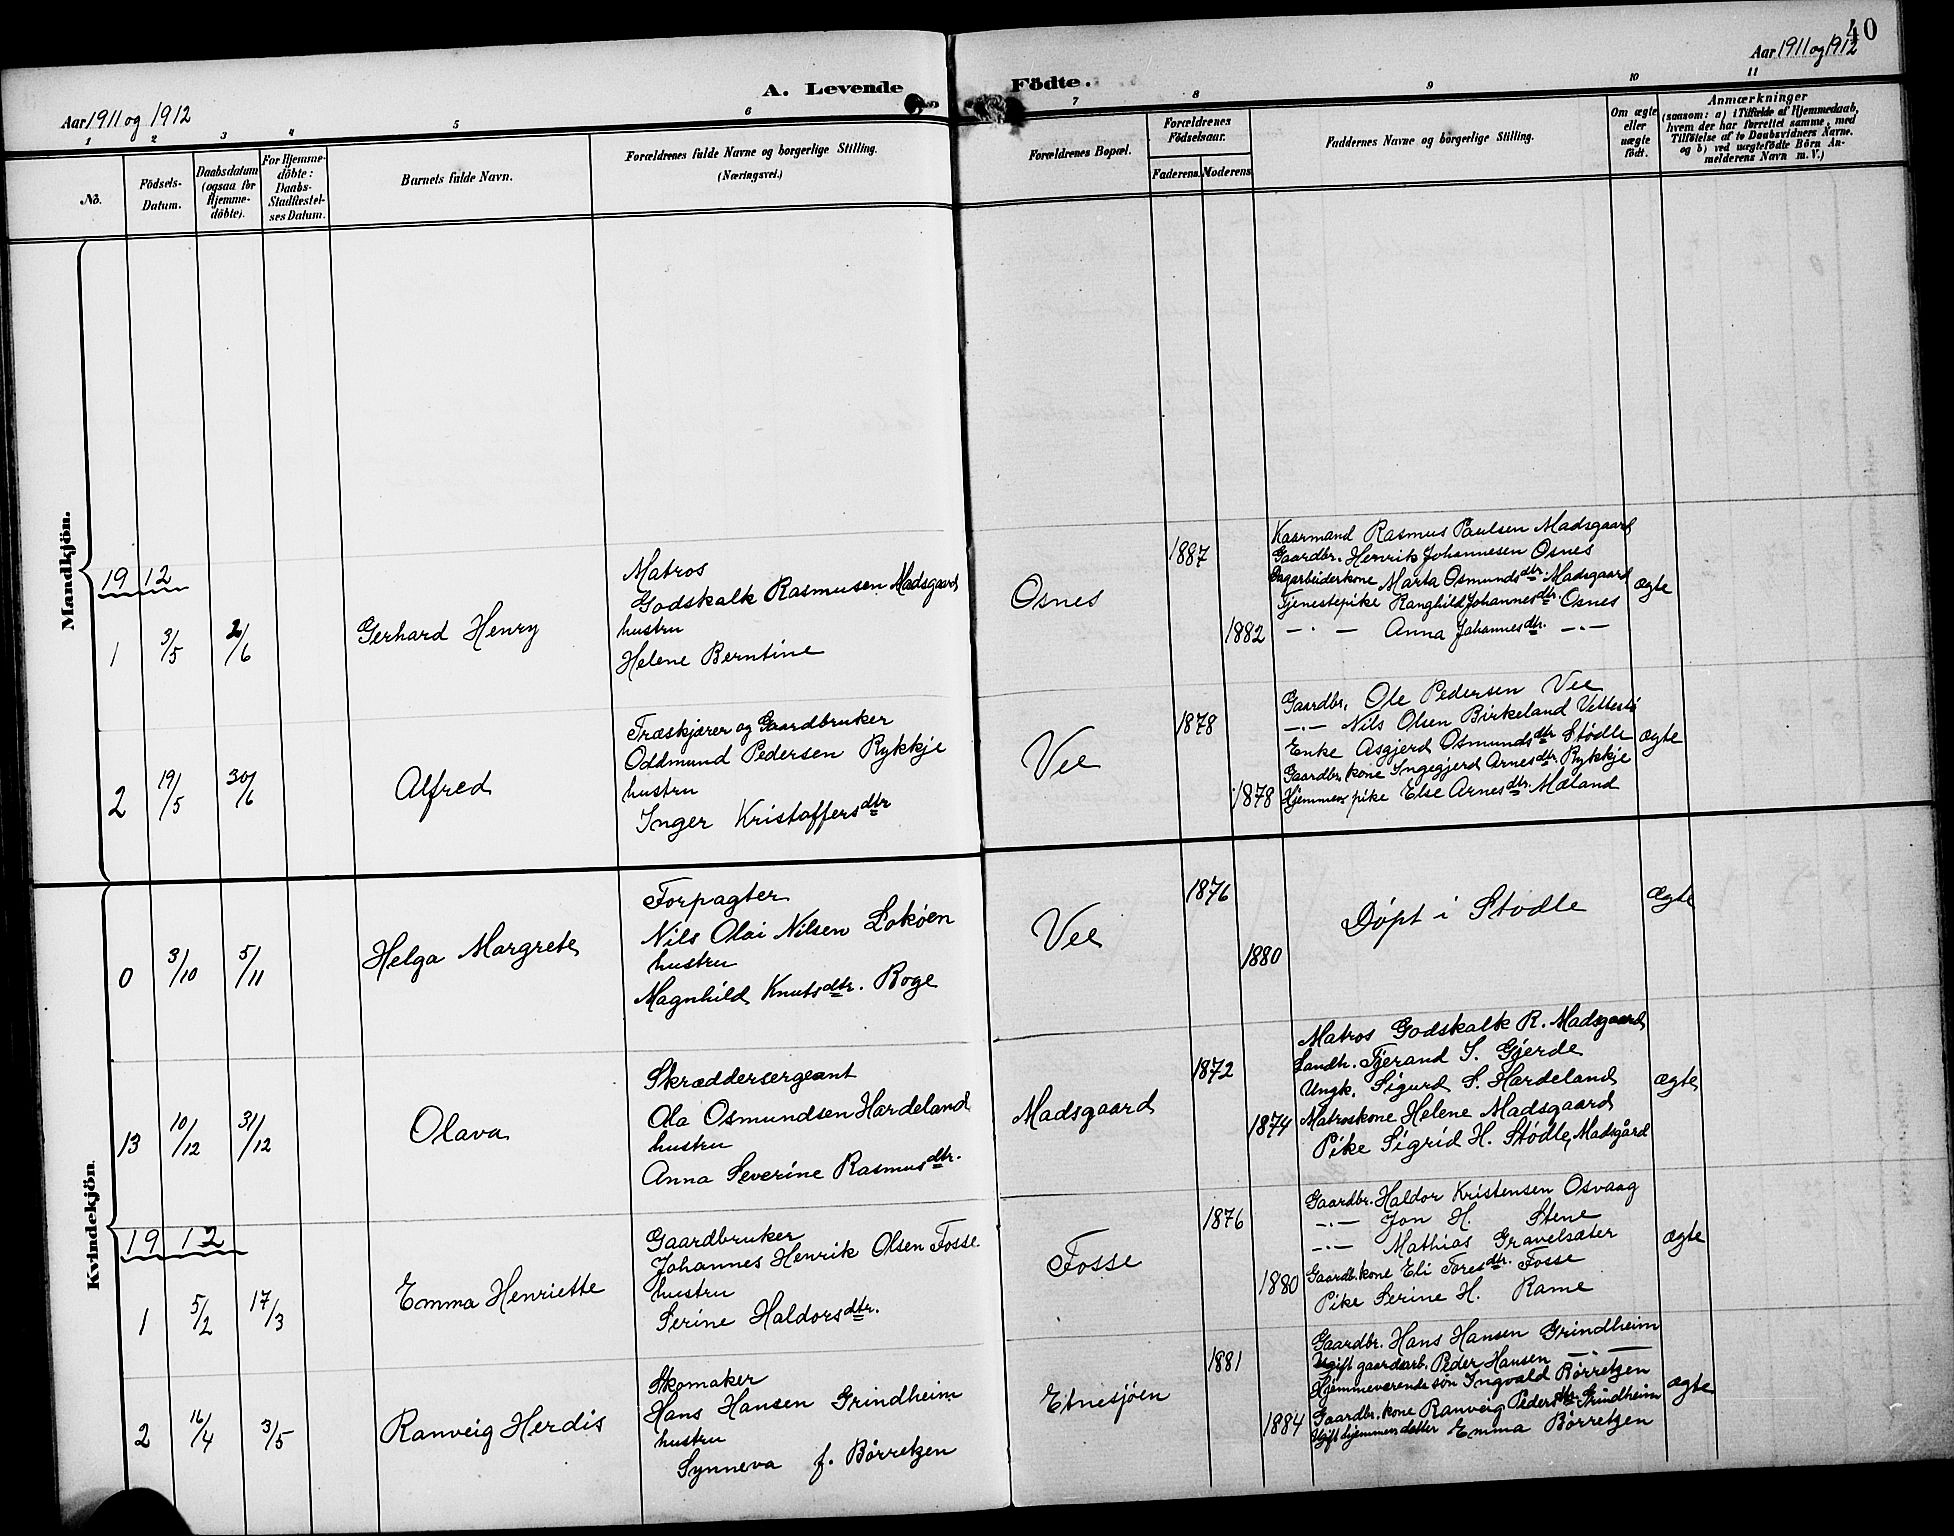 40
Aar 1911 og 1912
A. Levende Födte.
Aar 1911 og 1912
1 2 3 4 5 6 7 8 9 10 11
No.
Födsels-Datum.
Daabsdatum (ogsaa for Hjemme-döbte).
For Hjemme-döbte: Daabs-Stadfæstel-ses Datum.
Barnets fulde Navn.
Forældrenes fulde Navne og borgerlige Stilling.
(Næringsvei.)
Forældrenes Bopæl.
Forældrenes Födselsaar.
Faderens. Moderens
Faddernes Navne og borgerlige Stilling.
Om ægte eller uægte födt.
Anmærkninger
(saasom: a) i Tilfælde af Hjemmedaab,
hvem der har forrettet samme, med
Tilföielse af to Daabsvidners Navne.
og b) ved uægtefödte Börn An-
melderens Navn m. V.)
Mandkjön.
1912
1 3/5 2/6 Gerhard Henry
Matros
Godskalk Rasmusen Madsgaard
hustru
Helene Berntine
Osnes
1887
1882
Kaarmand Rasmus Paulsen Madsgaard
Gaardbr. Henrik Johannesen Osnes
Dagarbeiderkone Marta Osmundsdtr. Madsgaard
Tjenestepike Ranghild Johannesdtr. Osnes
— · — Anna Johannesdtr. — · —
ægte
2 19/5 30/6 Alfred
Træskjærer og Gaardbruker
Oddmund Pedersen Rykkje
hustru
Inger Kristoffersdtr
Vee
1878
1878
Gaardbr. Ole Pedersen Vee
— · — Nils Olsen Birkeland Vettestø
Enke Asgjerd Osmundsdtr Stødle
Gaardbr. kone Ingegjerd Arnesdtr. Rykkje
Hjemmev. pike Else Arnesdtr. Mæland
ægte
Kvindekjön.
0 3/10 5/11 Helga Margrete
Forpagter
Nils Olai Nilsen Lokøen
hustru
Magnhild Knutsdtr. Boge
Vee
1876
1880
Døpt i Stødle
ægte
13 10/12 31/12 Olava
Skræddersergeant
Ola Osmundsen Hardeland
hustru
Anna Severine Rasmusdtr.
Madsgaard
1872
1874
Matros Godskalk R. Madsgaard
Landh. Tjerand S. Gjerde
Ungk. Sigurd S. Hardeland
Matroskone Helene Madsgaard
Pike Sigrid H. Stødle, Madsgård
ægte
1912
1 5/2 17/3 Emma Henriette
Gaardbruker
Johannes Henrik Olsen Fosse
hustru
Serine Haldorsdtr.
Fosse
1876
1880
Gaardbr. Haldor Kristensen Osvaag
— · — Jon H. Stene
— · — Mathias Gravelsæter
Gaardb. kone Eli Toresdtr. Fosse
Pike Serine H. Rame
ægte
2 16/4 3/5 Ranveig Herdis
Skomaker
Hans Hansen Grindheim
hustru
Synneva f. Børretzen
Etnesjøen
1881
1884
Gaardbr. Hans Hansen Grindheim
Ugift gaardarb. Peder Hansen — · —
Hjemmeværende søn Ingvald Børretzen
Gaardbr. kone Ranveig Pedersdtr. Grindheim
Ugift hjemmev. datter Emma Børretzen
ægte